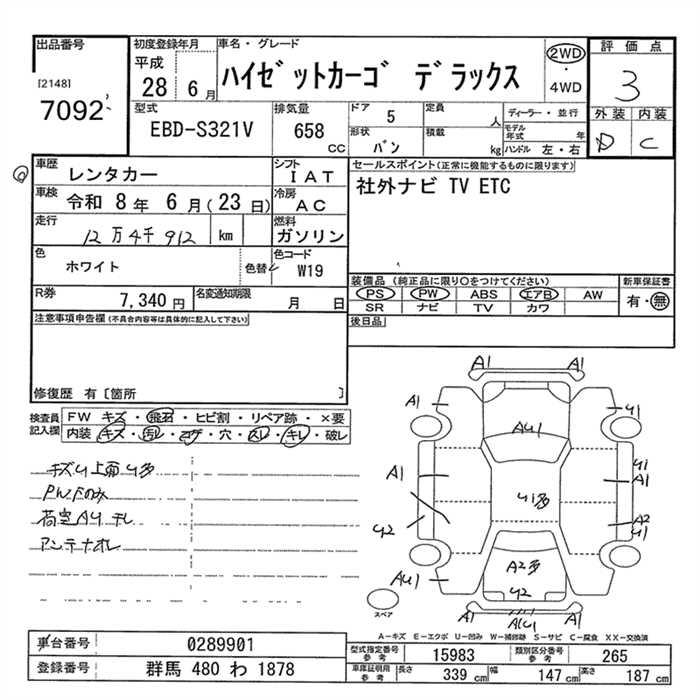 出品番号 [2148] 7092
初度登録年月 平成 28 6月
車名・グレード ハイゼットカーゴ デラックス
2WD・4WD
評価点 3
外装 D 内装 C
型式 EBD-S321V
排気量 658 CC
ドア 5 形状 バン
定員 人 積載 kg
ディーラー・並行
モデル年式 年
ハンドル 左・右
車歴 レンタカー
シフト IAT
車検 令和 8年 6月(23日)
冷房 AC
走行 12万4千912 km
燃料 ガソリン
色 ホワイト 色替
色コード W19
R券 7,340円
名変通知期限 月 日
セールスポイント(正常に機能するものに限ります)
社外ナビ TV ETC
装備品 (純正品に限り○をつけてください)
PS PW ABS エアB AW
SR ナビ TV カワ
新車保証書 有・無
後日品
注意事項申告欄(不具合内容等は具体的に記入して下さい)
修復歴 有〔箇所 〕
検査員記入欄
FW キズ・飛石・ヒビ割・リペア跡・×要
内装 キズ・汚レ・コゲ・穴・スレ・キレ・破レ
キズU上面U多
PWFのみ
荷室AUテレ
アンテナオレ
A1 A1
A1 U1
AU1
A1 U1 A1
U1多
U2 A2 U1
AU1 A2多
U2
A1 AU1 A1
スペア
A-キズ E-エクボ U-凹み W-補修跡 S-サビ C-腐食 XX-交換済
車台番号 0289901
登録番号 群馬 480 わ 1878
型式指定番号 参考 15983
類別区分番号 参考 265
車庫証明用 参考 長さ 339 cm 幅 147 cm 高さ 187 cm